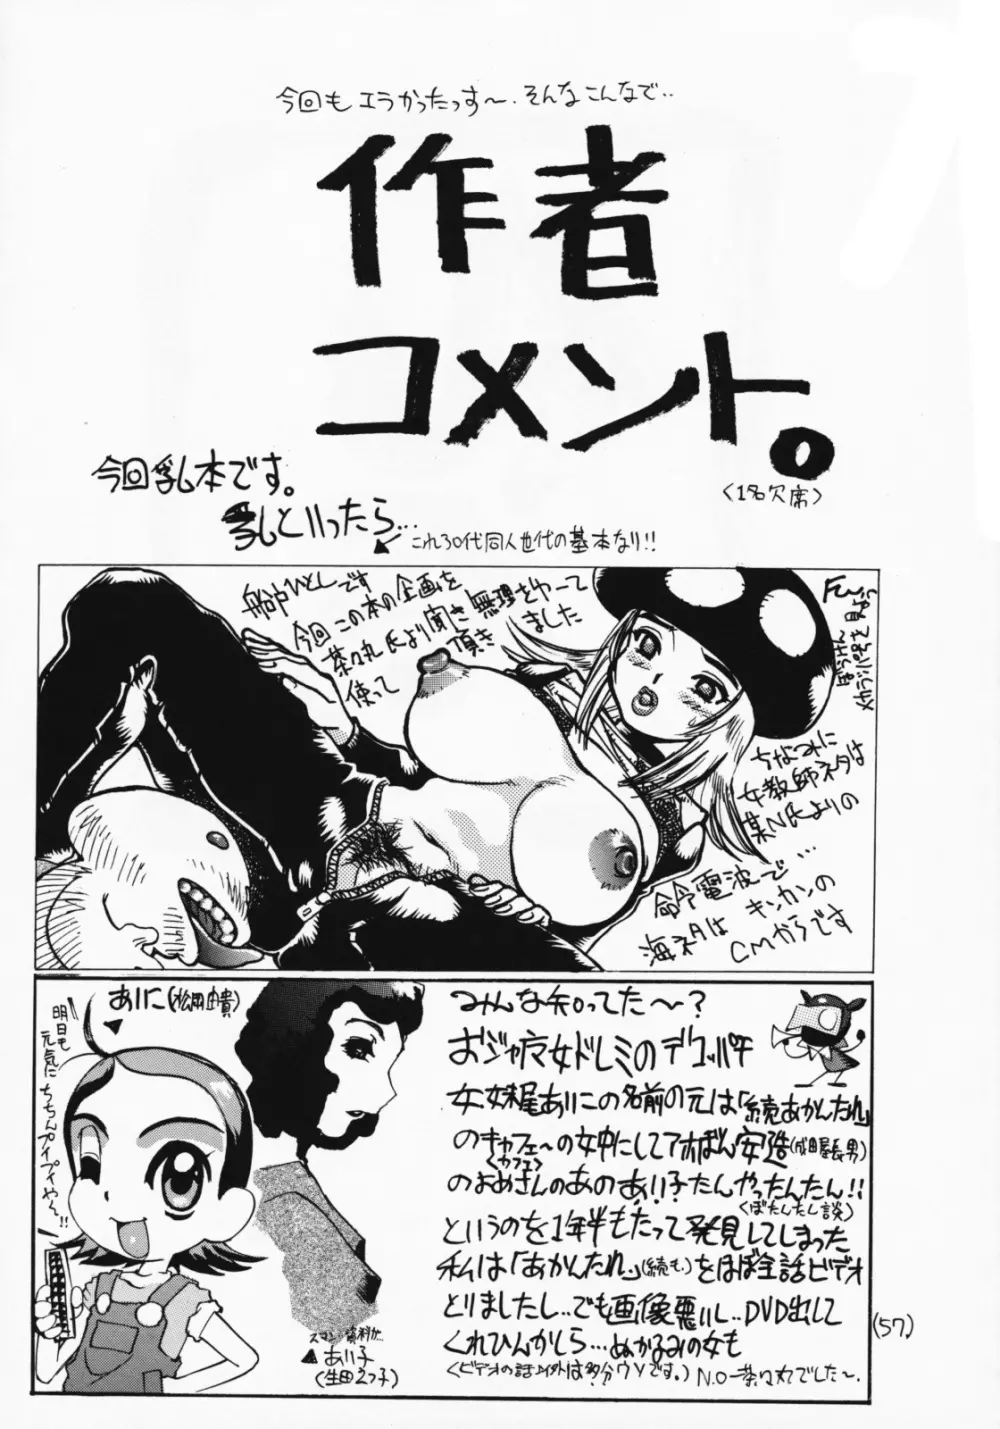 今回もエラかったっす〜.そんなこんなで..
作者
コメント。
〈1名欠席〉
今回乳本です。
乳といったら...
これ30代同人世代の基本なり!!
船中ひとしです
今回この本の企画を
茶々丸氏より聞き無理をやーって
使って頂きました
ちなみに
女教師ネタは
某N氏よりの
命令電波で...
海ネタはキンカンの
CMからです
あいこ(松岡由貴)
明日も
元気に
ちちんプイプイやん!!
スマン、資料が
あい子
(生田えつ子)
みんな知ってた〜?
おジャ魔女ドレミのデコッパチ
女、妹尾あいこの名前の元は「続あかんたれ」
のキャフェ〜の女中にしてアホぼん安造(成田屋長男)
〈カフェ〉
のおめさんのあのあい子たんやったんたん!!
〈ぼたんたん談〉
というのを1年半もたって発見してしまった
私は「あかんたれ」(続も)をほぼ全話ビデオ
とりましたし..でも画像悪いし..DVD出して
くれひんかしら...ぬかるみの女も
〈ビデオの話以外は多分ウソです。〉
N.O-茶々丸でした〜.
(57)